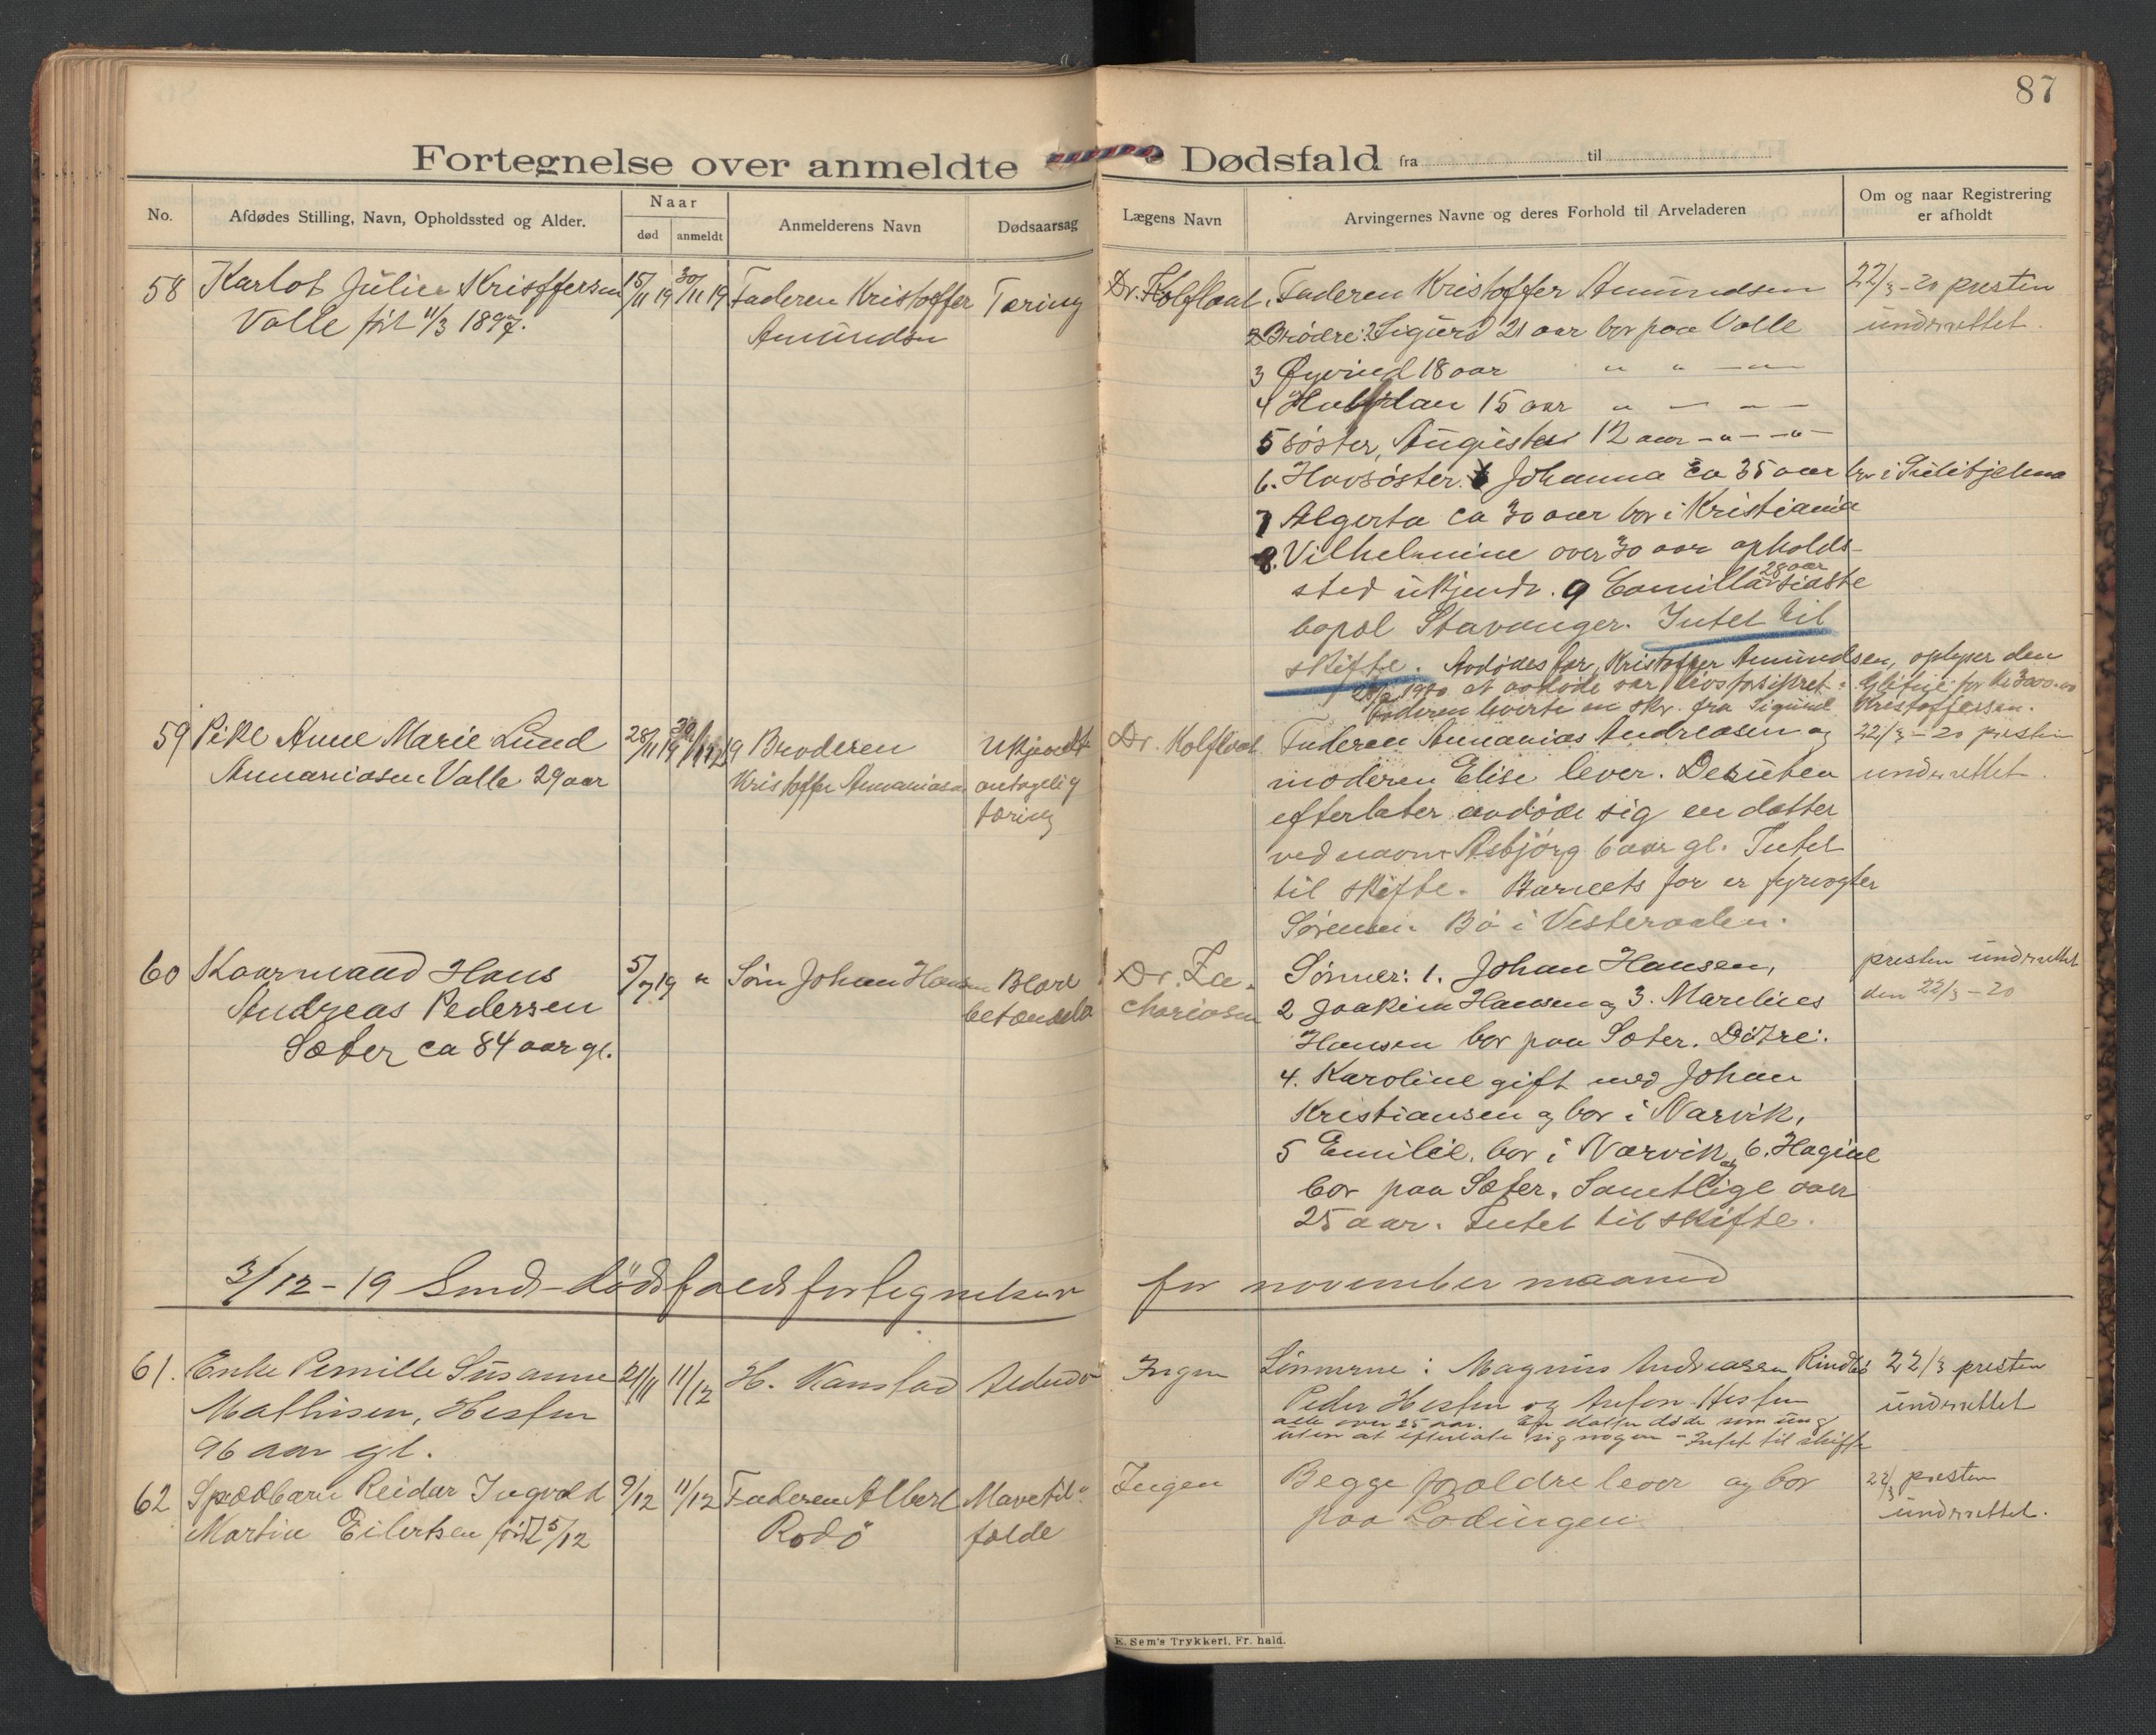 87
Fortegnelse over anmeldte Dødsfald fra til
No.
Afdødes Stilling, Navn, Opholdssted og Alder.
Naar
død
anmeldt
Anmelderens Navn
Dødsaarsag
Lægens Navn
Arvingernes Navne og deres Forhold til Arveladeren
Om og naar Registrering
er afholdt
58
Karlot Julius Kristoffersen
Valle født 11/3 1897.
15/11 19
30/11 19
Faderen Kristoffer
Amundsen
Tæring
Dr. Kolfloat
Faderen Kristoffer Amundsen
Brødre: 2 Sigurd 21 aar bor paa Valle
3 Øyvind 18 aar " " — " —
4 Halfdan 15 aar " — " —
5 søster, Augusta 12 aar - " - - " -
6. Havsøster Johanna ca 35 aar bor i Sulitjelma
7 Algerta ca 30 aar bor i Kristiania
8. Vilhelmine over 30 aar opholds-
sted ukjendt. 9 Camilla 28 aar sidste
bopæl Stavanger. Intet til
skifte. Avdødes far, Kristoffer Amundsen, oplyser den
1920 at avdøde var livsforsikret i for kr 3000.00
Faderen leverte en skr. fra Sigurd Kristoffersen.
22/3-20 presten
underrettet.
59
Pike Anne Marie Lund
Annaniasen Valle 29 aar
28/11 19
Broderen
Kristoffer Annaniasen
Ukjendt
antagelig
tæring
Dr. Kolfloat
Faderen Annanias Andreasen og
moderen Elise lever. Desuten
efterlater avdøde sig en datter
ved navn Asbjørg 6 aar gl. Intet
til skifte. Barnets far er fyrvogter
Sørensen Bø i Vesteraalen.
22/3-20 presten
underrettet.
60
Kaarmand Hans
Andreas Pedersen
Sæter ca 84 aar gl.
5/7 19
"
Søn Johan Hansen
Blære
betændelse
Dr. Za-
chariasen
Sønner: 1. Johan Hansen,
2 Joakim Hansen og 3. Marelius
Hansen bor paa Sæter. Døtre:
4. Karoline gift med Johan
Kristiansen og bor i Narvik,
5 Emilie, bor i Narvik og 6. Hagine
bor paa Sæter. Samtlige over
25 aar. Intet til skifte.
presten underrettet
den 22/3-20
3/12-19 Sendt dødsfaldsfortegnelser for november maaned
61.
Enke Pernille Susanne
Mathisen, Hesten
96 aar gl.
21/11
11/12
H. Kanstad
Alderdom
Ingen
Sønnerne: Magnus Andreassen Rindbø
Peder Hesten og Anton Hesten
alle over 25 aar. En datter døde som ung
uten at efterlate sig nogen - Intet til skifte
22/3 presten
underrettet
62
Spædbarn Reidar Ingvald
Martin Eilertsen født 5/12
9/12
11/12
Faderen Albert
Rodø
Mavetil-
fælde
Ingen
Begge forældre lever og bor
paa Lødingen
22/3 presten
underrettet.
E. Sem's Trykkeri, Fr. hald.